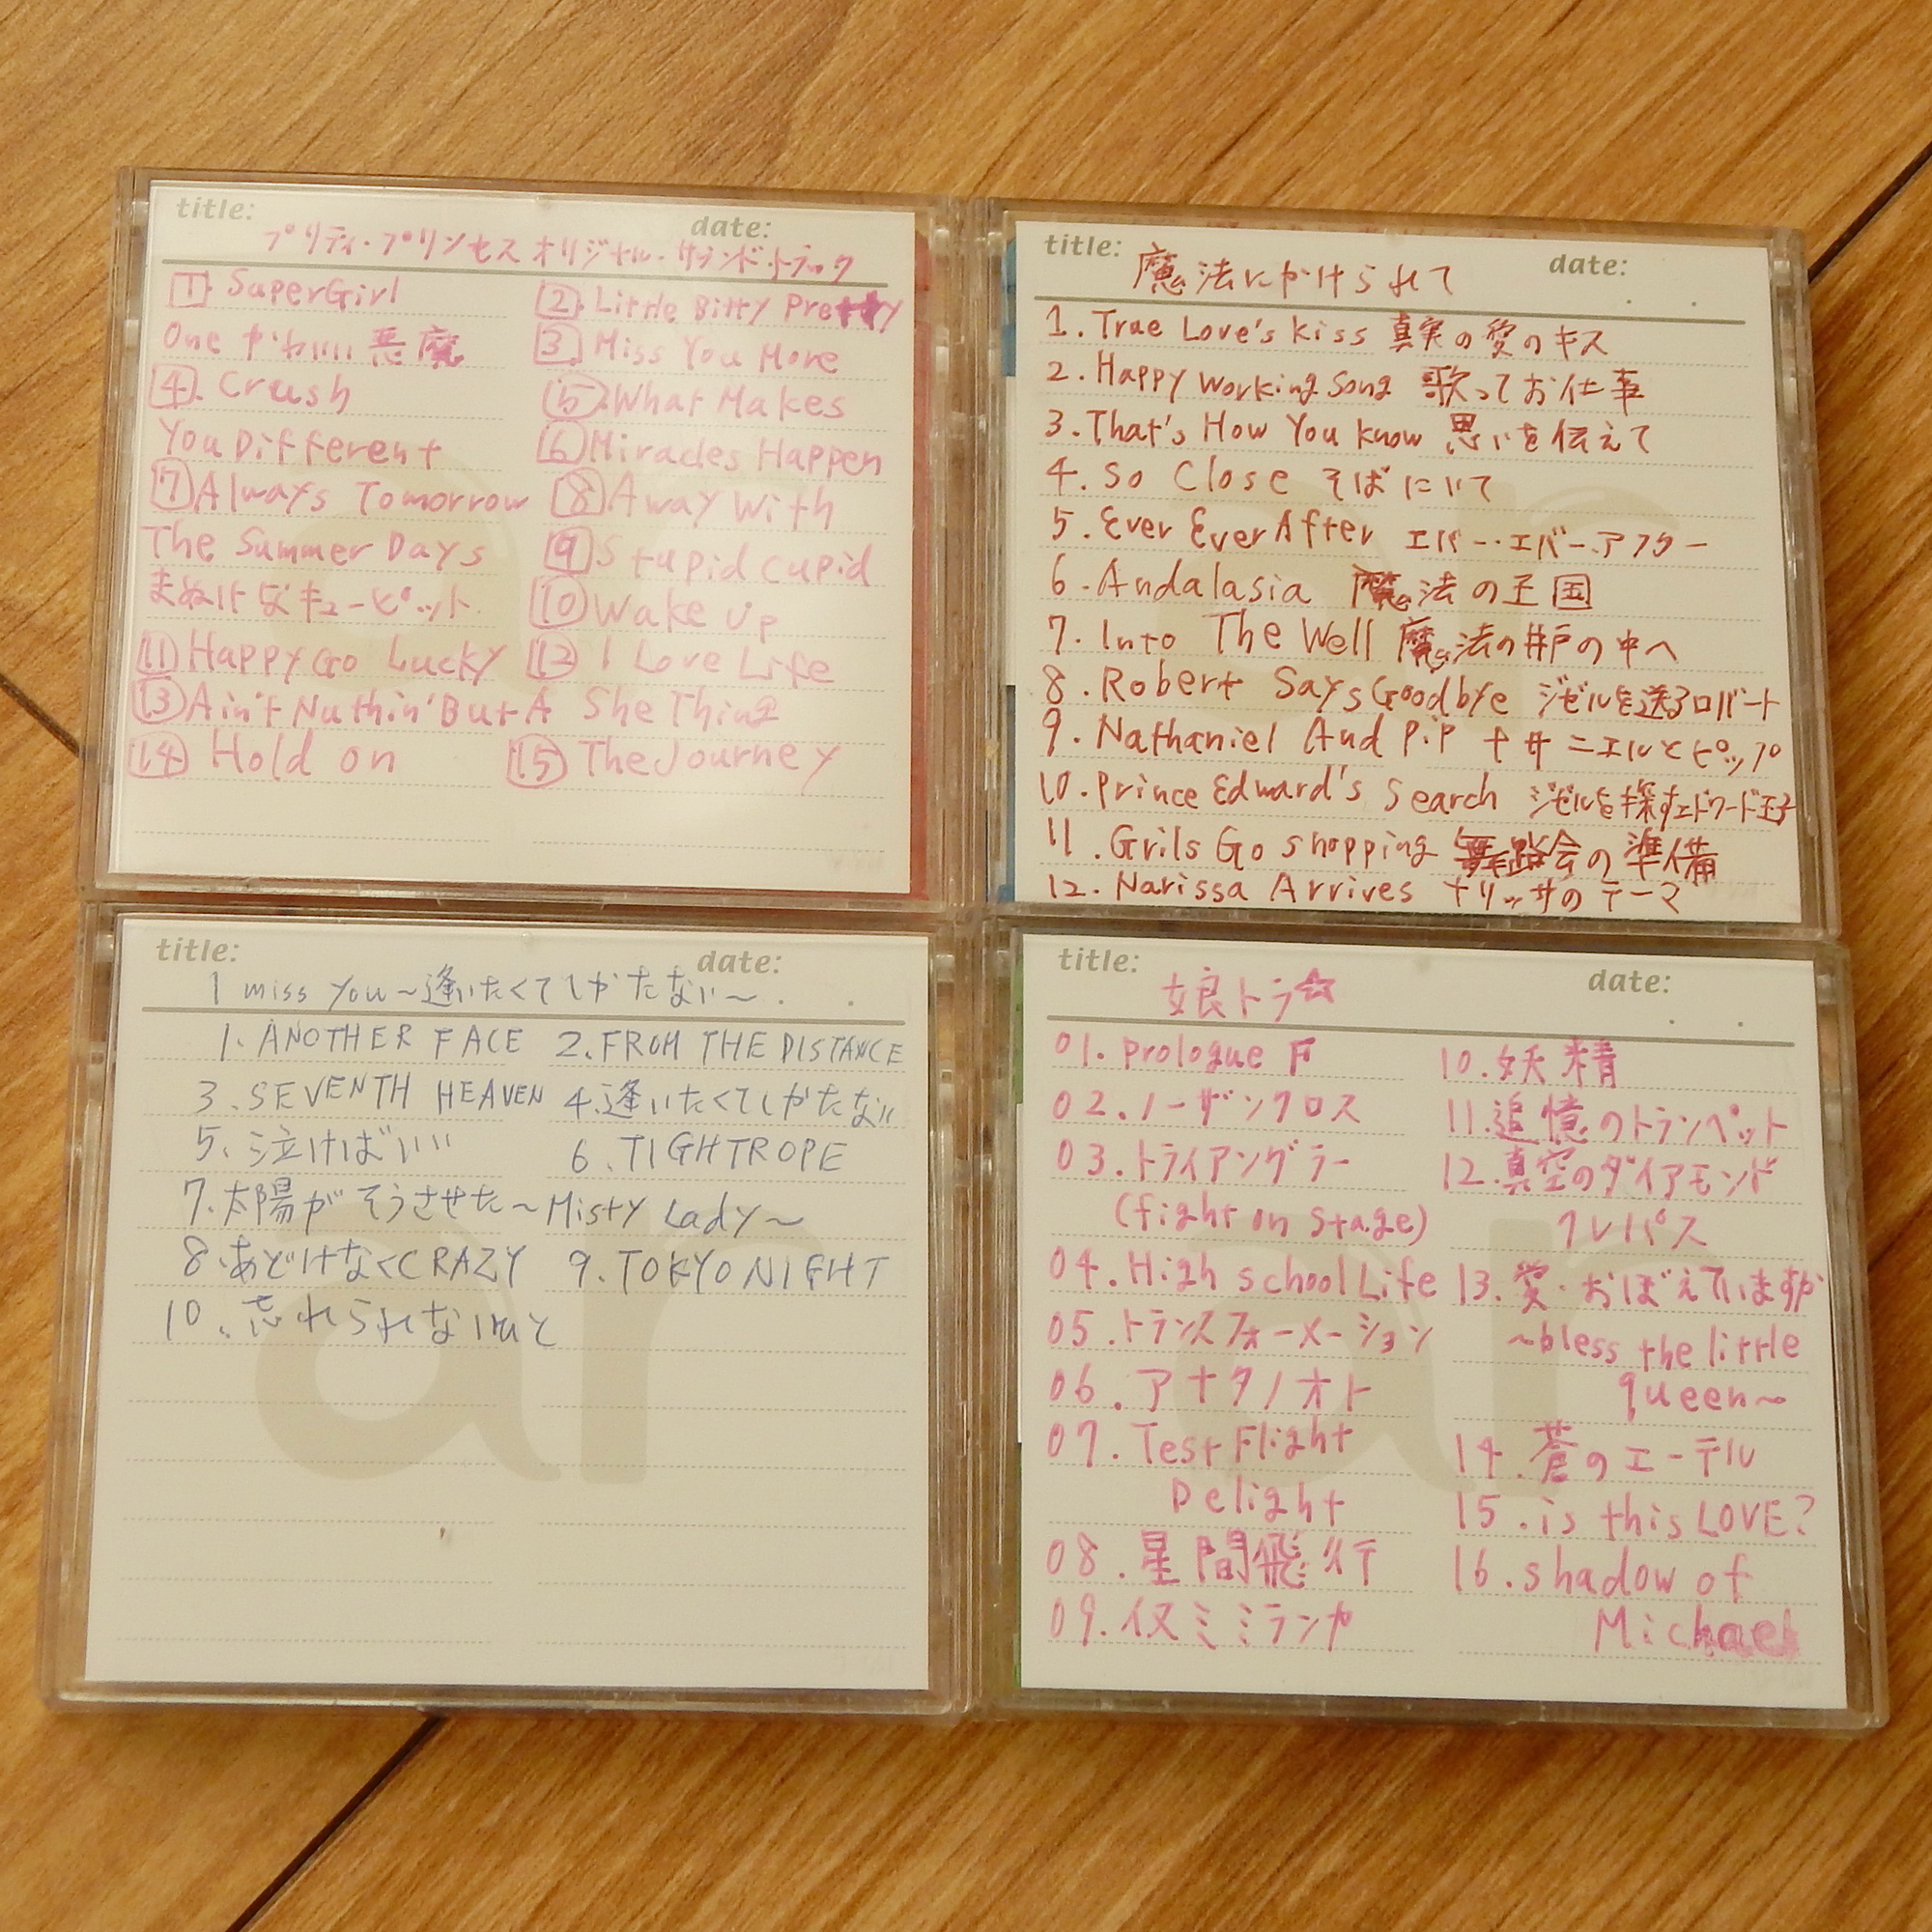 title:
date:
プリティ・プリンセス オリジナル・サウンド・トラック
1. SuperGirl
2. Little Bitty Pretty
One かわいい悪魔
3. Miss You More
4. Crush
5. What Makes
You Different
6. Miracles Happen
7. Always Tomorrow
8. Away With
The Summer Days
9. Stupid Cupid
まぬけなキューピット
10. Wake Up
11. Happy Go Lucky
12. I Love Life
13. Ain't Nuthin' But A She Thing
14. Hold on
15. The Journey
title:
date:
魔法にかけられて
1. True Love's Kiss 真実の愛のキス
2. Happy Working Song 歌ってお仕事
3. That's How You Know 思いを伝えて
4. So Close そばにいて
5. Ever Ever After エバー・エバー・アフター
6. Andalasia 魔法の王国
7. Into The Well 魔法の井戸の中へ
8. Robert Says Goodbye ジゼルを送るロバート
9. Nathaniel And Pip ナサニエルとピップ
10. Prince Edward's Search ジゼルを探すエドワード王子
11. Grils Go Shopping 舞踏会の準備
12. Narissa Arrives ナリッサのテーマ
title:
date:
I miss you～逢いたくてしかたない～
1. ANOTHER FACE 2. FROM THE DISTANCE
3. SEVENTH HEAVEN 4. 逢いたくてしかたない
5. 泣けばいい 6. TIGHTROPE
7. 太陽がそうさせた～Misty Lady～
8. あどけなくCRAZY 9. TOKYO NIGHT
10. 忘れられないひと
title:
date:
娘トラ☆
01. Prologue F
02. ノーザンクロス
03. トライアングラー
(fight on stage)
04. High School Life
05. トランスフォーメーション
06. アナタノオト
07. Test Flight
Delight
08. 星間飛行
09. イヌミミランカ
10. 妖精
11. 追憶のトランペット
12. 真空のダイアモンド
クレバス
13. 愛・おぼえていますか
～bless the little
queen～
14. 蒼のエーテル
15. is this LOVE?
16. shadow of
Michael